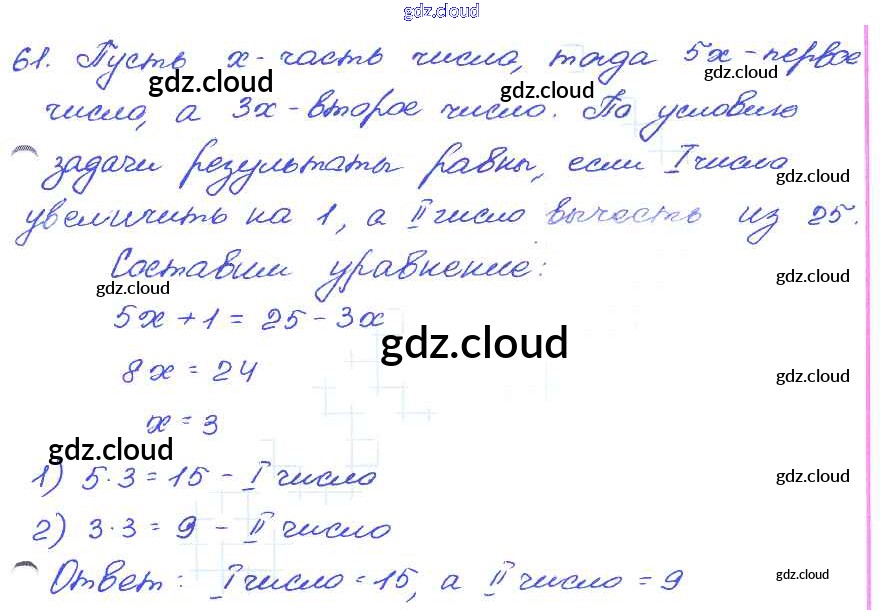 gdz.cloud
61. Пусть x - часть числа, тогда 5x - первое
gdz.cloud gdz.cloud gdz.cloud
число, а 3x - второе число. По условию
задачи результаты равны, если I числа
gdz.cloud
увеличить на 1, а II число вычесть из 25.
Составим уравнение:
gdz.cloud gdz.cloud
5x + 1 = 25 - 3x
gdz.cloud
8x = 24
gdz.cloud
x = 3
gdz.cloud
1) 5·3 = 15 - I число
gdz.cloud
2) 3·3 = 9 - II число
Ответ: I число = 15, а II число = 9
gdz.cloud